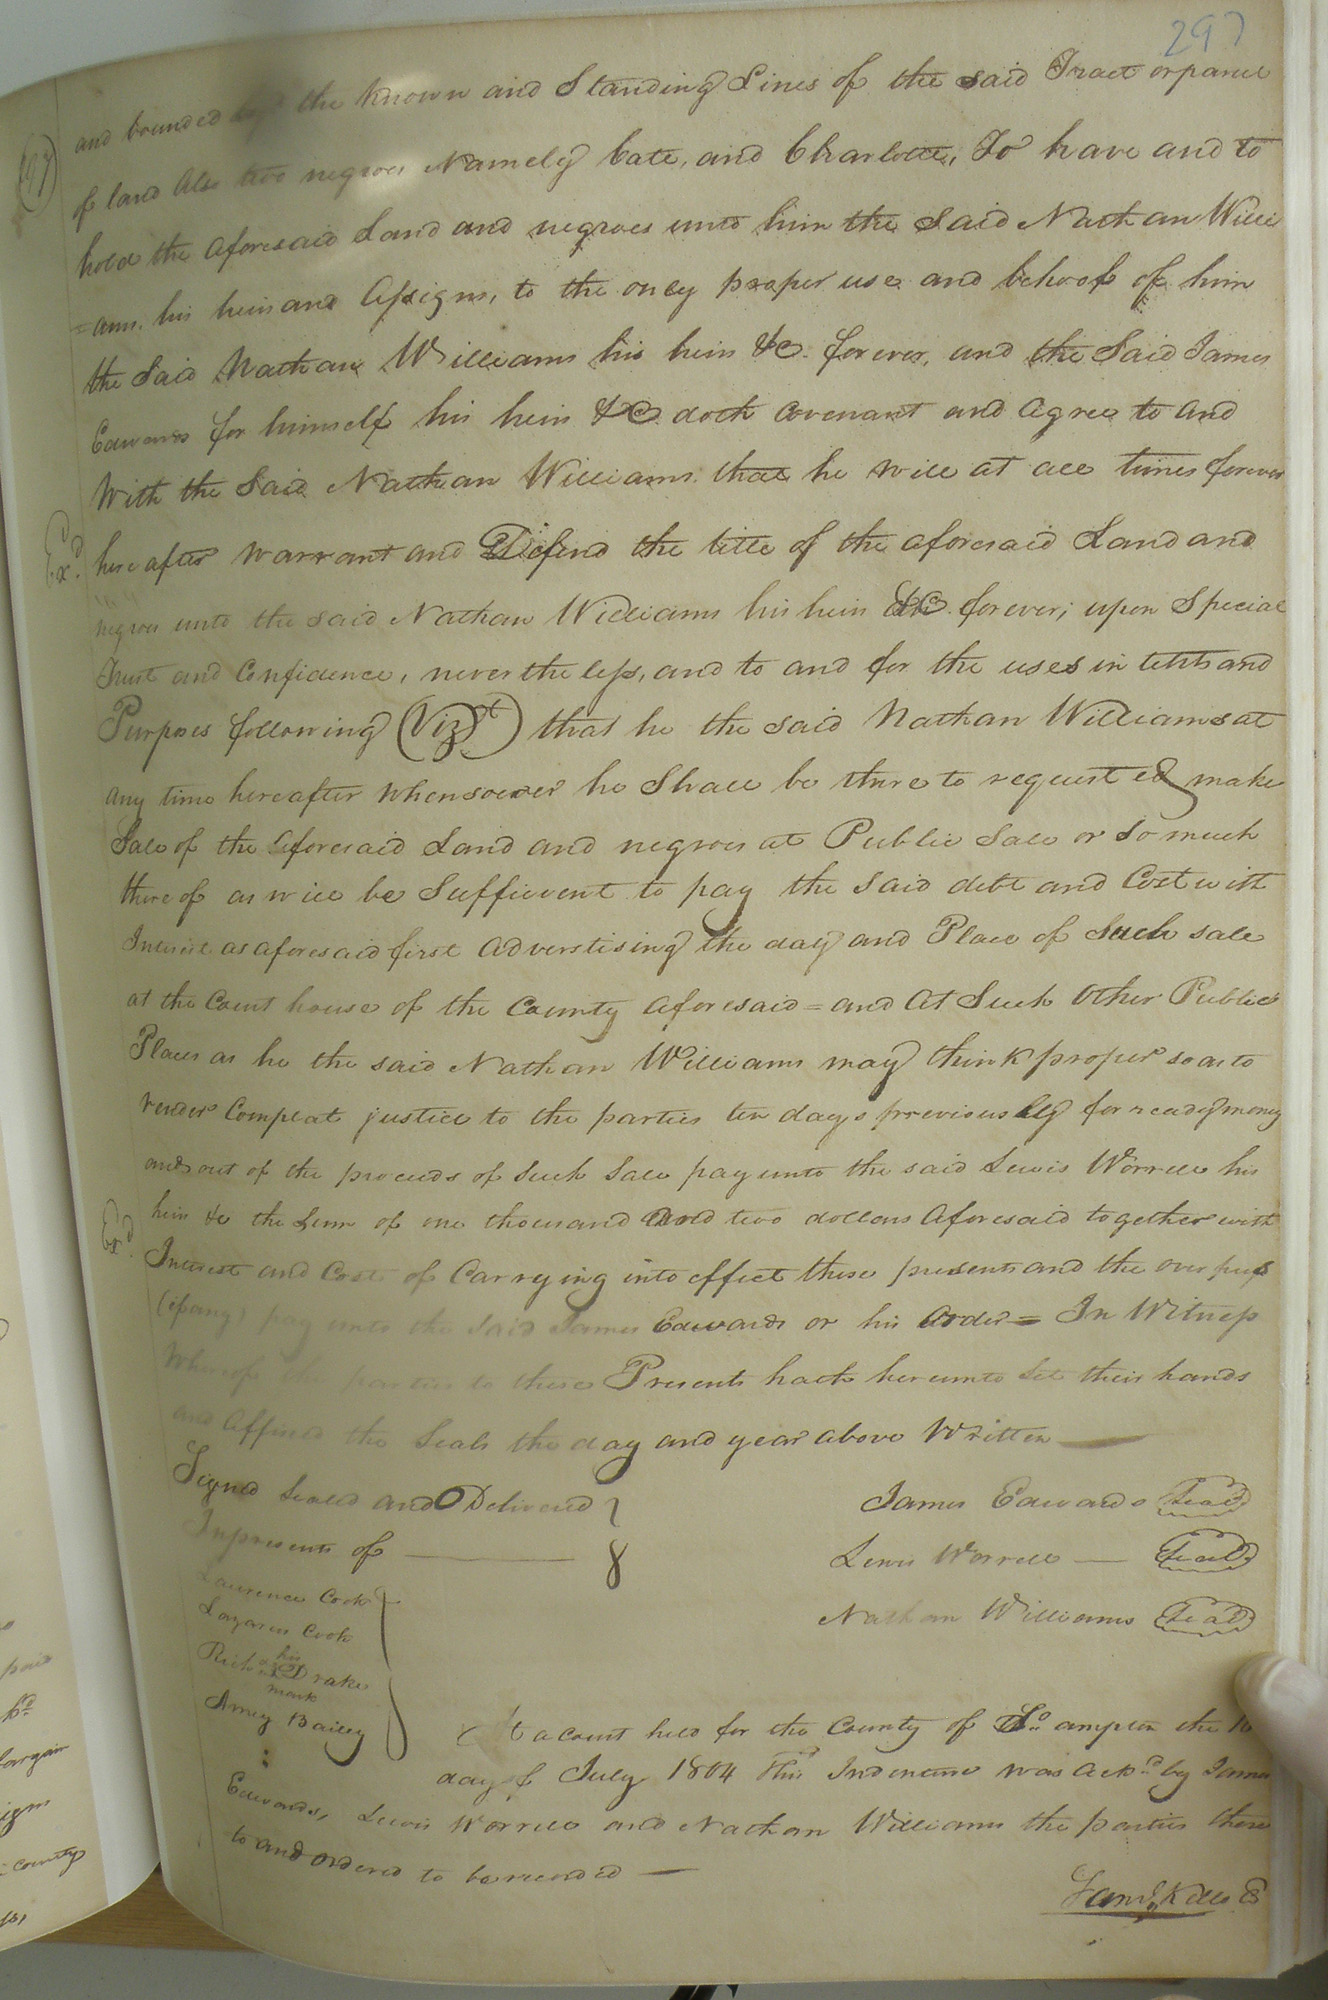 297
and bounded by the known and Standing Lines of the said Tract or parcel
of land Also two negroes Namely Cate, and Charlotte, To have and to
hold the aforesaid Land and negroes unto him the Said Nathan Willi
=ams. his heirs and Assigns, to the only proper use and behoof of him
the Said Nathan Williams his heirs &C. forever, and the Said James
Edwards for himself his heirs &C doth Covenant and Agree to and
With the Said Nathan Williams that he will at all times forever
Exd.
here after warrant and Defend the title of the aforesaid Land and
negroes unto the said Nathan Williams his heirs &C. forever; upon Special
Trust and Confidence, never the less, and to and for the uses intents and
Purposes following (Vizt) that he the said Nathan Williams at
any time hereafter whensoever he Shall be there to requested make
Sale of the aforesaid Land and negroes at Public Sale or So much
there of as will be Sufficient to pay the said debt and Cost with
Interest as aforesaid first Adverstising the day and Place of Such sale
at the Court house of the County aforesaid = and At Such Other Public
Places as he the said Nathan Williams may think proper so as to
render Compleat justice to the parties ten days previously for ready money
and out of the proceeds of Such Sale pay unto the said Lewis Worrell his
Exd.
heirs &c the Sum of one thousand and two dollars Aforesaid together with
Interest and Costs of Carrying into effect these presents and the over pluss
(if any) pay unto the said James Edwards or his Order = In Witness
Whereof the parties to these Presents hath hereunto Set their hands
and Affixed the Seals the day and year above Written
Signed Sealed and Delivered
In presents of
James Edwards Seal
Lewis Worrell Seal
Nathan Williams Seal
Laurence Cook
Lazarus Cook
his
Richd Drake
mark
Amey Bailey
At a Court held for the County of So.ampton the 16
day of July 1804 This Indenture was Ackd. by James
Edwards, Lewis Worrell and Nathan Williams the parties there
to and ordered to be recorded
Saml. Kello C